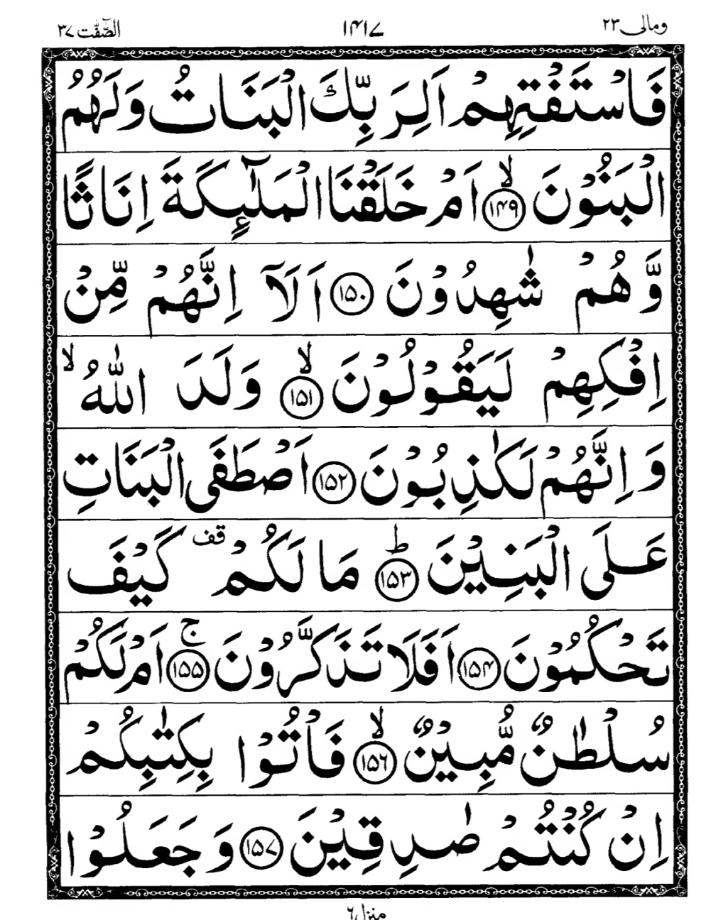 ومالی ۲۳ ۱۴۱۷ الصّٰٓفّٰت ۳۷
فَاسْتَفْتِهِمْ اَلِرَبِّكَ الْبَنَاتُ وَلَهُمُ
الْبَنُوْنَ ۙ﴿۱۴۹﴾ اَمْ خَلَقْنَا الْمَلٰٓئِكَةَ اِنَاثًا
وَّهُمْ شٰهِدُوْنَ ﴿۱۵۰﴾ اَلَاۤ اِنَّهُمْ مِّنْ
اِفْكِهِمْ لَيَقُوْلُوْنَ ۙ﴿۱۵۱﴾ وَلَدَ اللّٰهُ ۙ
وَاِنَّهُمْ لَكٰذِبُوْنَ ﴿۱۵۲﴾ اَصْطَفَى الْبَنَاتِ
عَلَى الْبَنِيْنَ ؕ﴿۱۵۳﴾ مَا لَكُمْ قف كَيْفَ
تَحْكُمُوْنَ ﴿۱۵۴﴾ اَفَلَا تَذَكَّرُوْنَ ۚ﴿۱۵۵﴾ اَمْ لَكُمْ
سُلْطٰنٌ مُّبِيْنٌ ۙ﴿۱۵۶﴾ فَاْتُوْا بِكِتٰبِكُمْ
اِنْ كُنْتُمْ صٰدِقِيْنَ ﴿۱۵۷﴾ وَجَعَلُوْا
منزل ۶